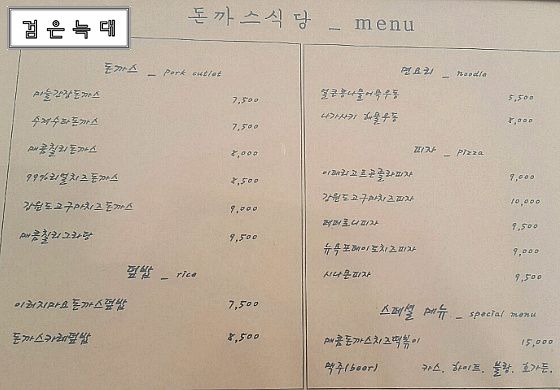 검은늑대
돈까스식당 _ menu
돈까스 _ pork cutlet
마늘간장돈까스 7,500
수제수타돈까스 7,500
매콤칠리돈까스 8,000
99%리얼치즈돈까스 8,500
강원도고구마치즈돈까스 9,000
매콤칠리그라탕 9,500
덮밥 _ rice
이려치마요돈까스덮밥 7,500
돈까스카레덮밥 8,500
면요리 _ noodle
얼큰콩나물어묵우동 5,500
나가사키 해물우동 8,000
피자 _ pizza
이태리고르곤졸라피자 9,000
강원도고구마치즈피자 10,000
페퍼로니피자 9,500
뉴욕포테이토치즈피자 9,000
시나몬피자 9,500
스페셜 메뉴 _ special menu
매콤돈까스치즈떡볶이 15,000
맥주(beer) 카스, 하이트, 블랑, 호가든.